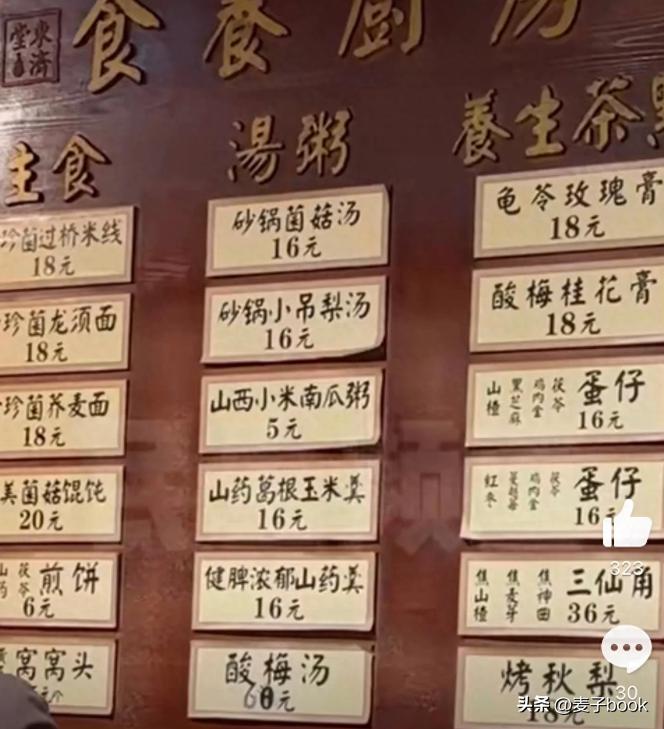 東濟堂
食養廚房
主食
珍菌过桥米线
18元
珍菌龙须面
18元
珍菌荞麦面
18元
美菌菇馄饨
20元
茯苓 煎饼
6元
窝窝头
湯粥
砂锅菌菇汤
16元
砂锅小吊梨汤
16元
山西小米南瓜粥
5元
山药葛根玉米羹
16元
健脾浓郁山药羹
16元
酸梅汤
元
養生茶點
龟苓玫瑰膏
18元
酸梅桂花膏
18元
山楂 黑芝麻 鸡内金 茯苓 蛋仔
16元
红枣 蔓越莓 鸡内金 茯苓 蛋仔
16元
焦山楂 焦麦芽 焦神曲 三仙角
36元
烤秋梨
18元
323
30
头条 @麦子book